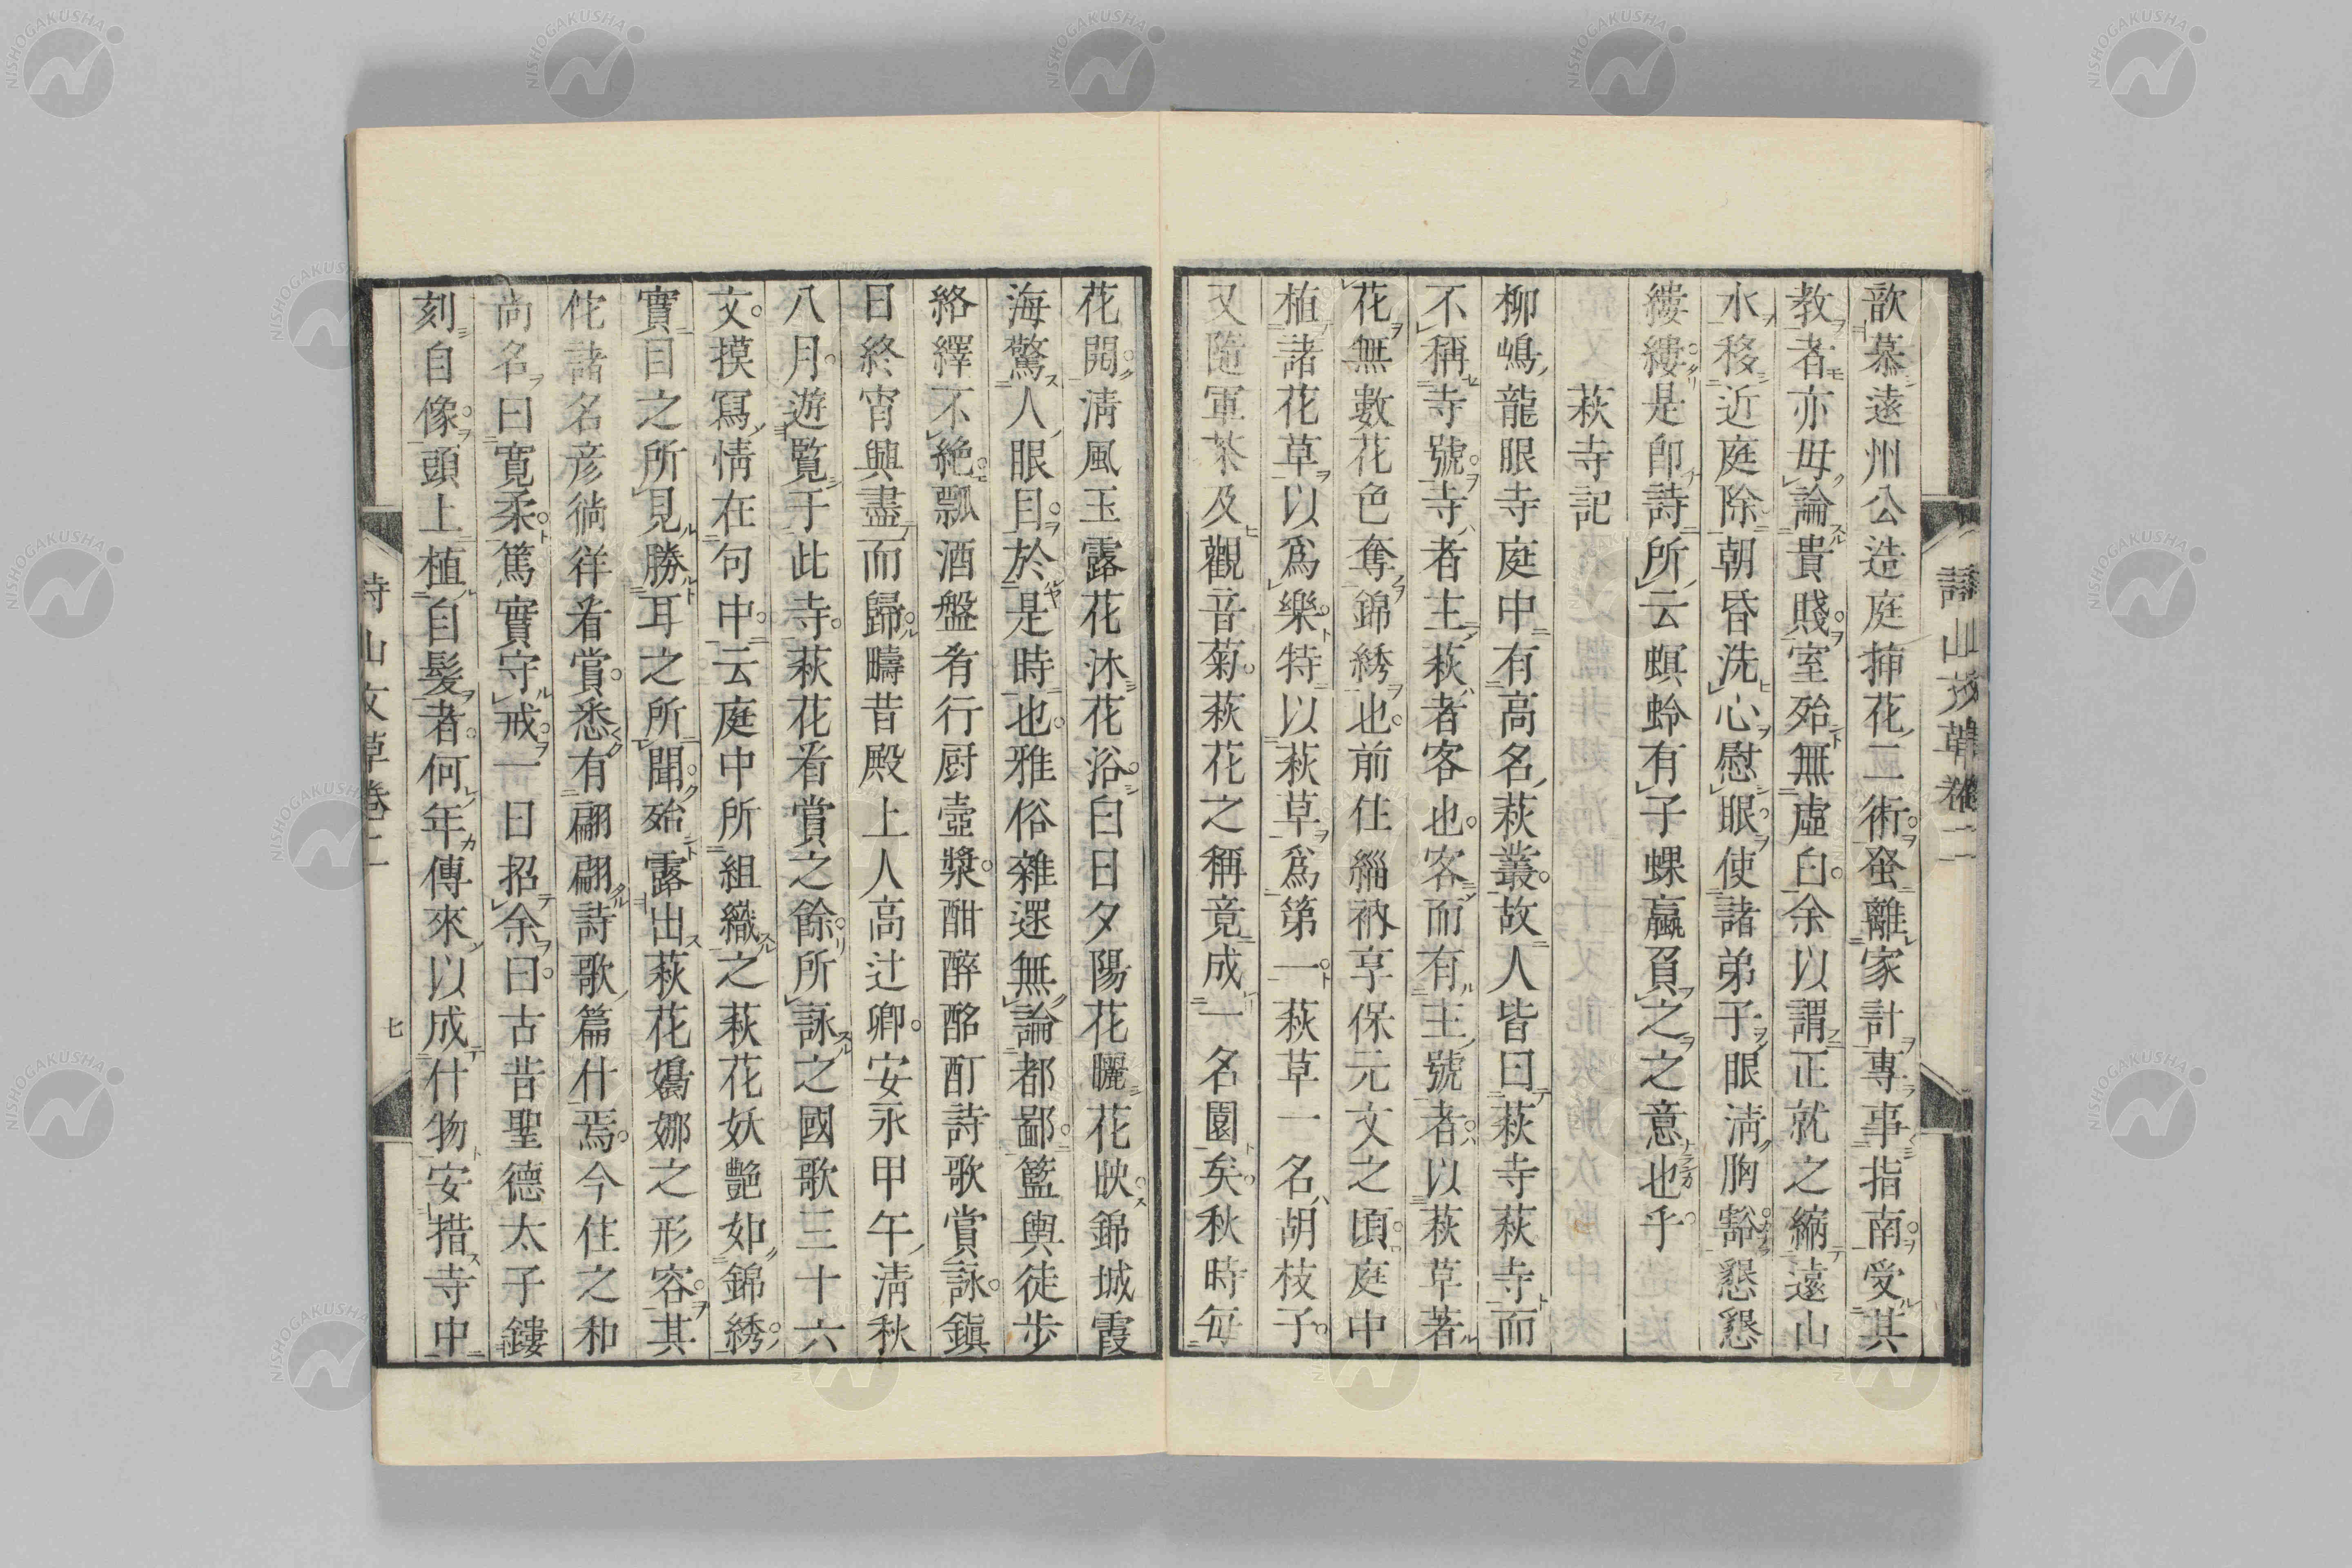 歆慕遠州公造庭揷花二術蚤離家計專事指南受其
教者亦毋論貴賤室殆無虛白余以謂正就之縮遠山
水移近庭除朝昏洗心慰眼使諸弟子眼淸胸豁懇懇
縷縷是卽詩所云螟蛉有子蜾蠃負之之意也乎
萩寺記
柳嶋龍眼寺庭中有高名萩叢故人皆曰萩寺萩寺而
不稱寺號寺者主萩者客也客而有主號者以萩草著
花無數花色奪錦綉也前住緇衲享保元文之頃庭中
植諸花草以爲樂特以萩草爲第一萩草一名胡枝子
又隨軍茶及觀音菊萩花之稱竟成一名園矣秋時每
花開淸風玉露花沐花浴白日夕陽花曬花映錦城霞
海驚人眼目於是時也雅俗雜遝無論都鄙籃輿徒步
絡繹不絕瓢酒盤肴行厨壺漿酣醉酩酊詩歌賞詠鎭
日終宵興盡而歸疇昔殿上人高辻卿安永甲午淸秋
八月遊覧于此寺萩花看賞之餘所詠之國歌三十六
文摸寫情在句中云庭中所組織之萩花妖艶如錦綉
實目之所見勝耳之所聞殆露出萩花嬝娜之形容其
侘諸名彦徜徉看賞悉有翩翩詩歌篇什焉今住之和
尚名曰寛柔篤實守戒一日招余曰古昔聖德太子鏤
刻自像頭上植自髮者何年傳來以成什物安措寺中
詩山文草卷二
七